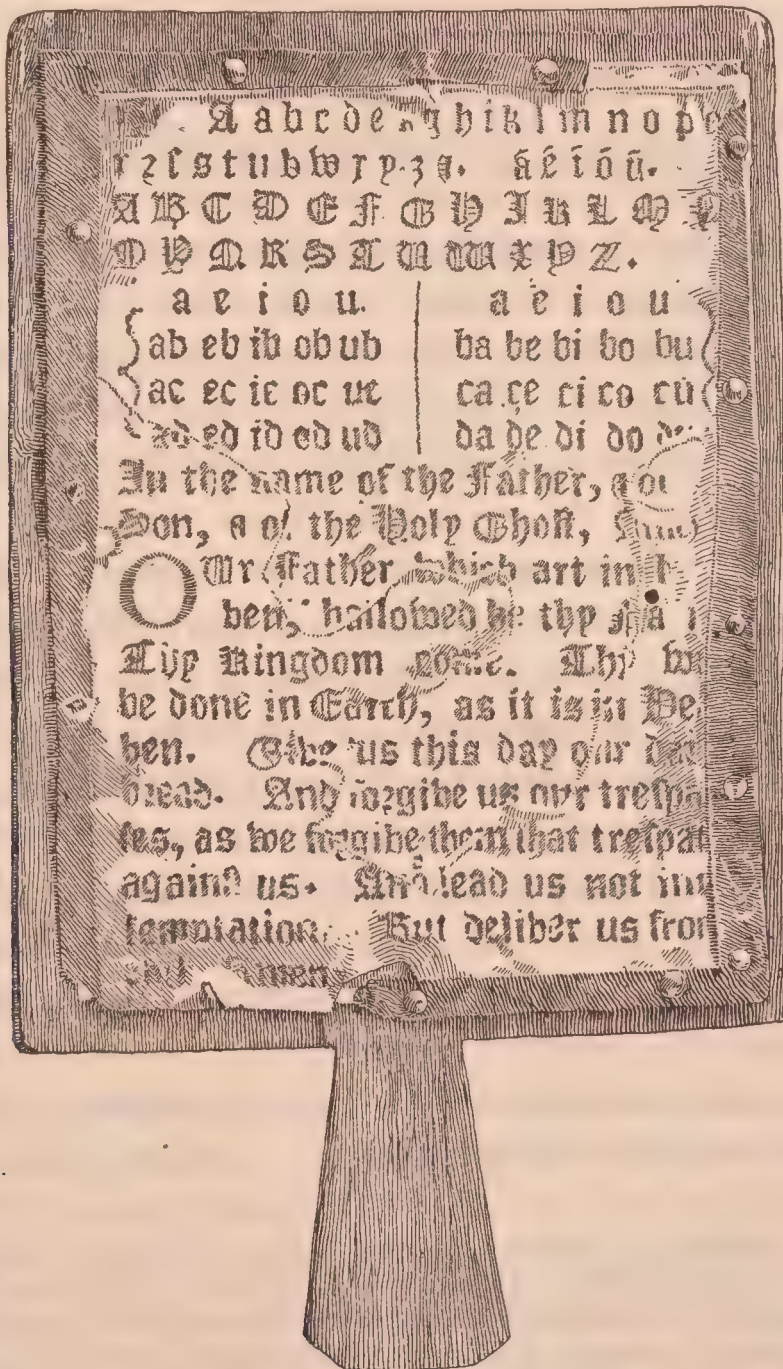 A a b c d e g h i k l m n o p
r ꝛ ſ s t u b w x y z ⁊. ã ẽ ĩ õ ũ.
A B C D E F G H I K L M
O P Q R S T U W X Y Z.
a e i o u. a e i o u
ab eb ib ob ub ba be bi bo bu
ac ec ic oc uc ca ce ci co cu
ad ed id od ud da de di do
In the name of the Father, ⁊ of
Son, ⁊ of the Holy Ghoſt,
OUr Father which art in
ben, hallowed be thy
Thy Kingdom come. Thy
be done in Earth, as it is in Hea
ben. Gibe us this day our
bread. And forgibe us our treſpaſ
ſes, as we forgibe them that treſpaſ
againſt us. And lead us not into
temptation. But deliber us from
Amen